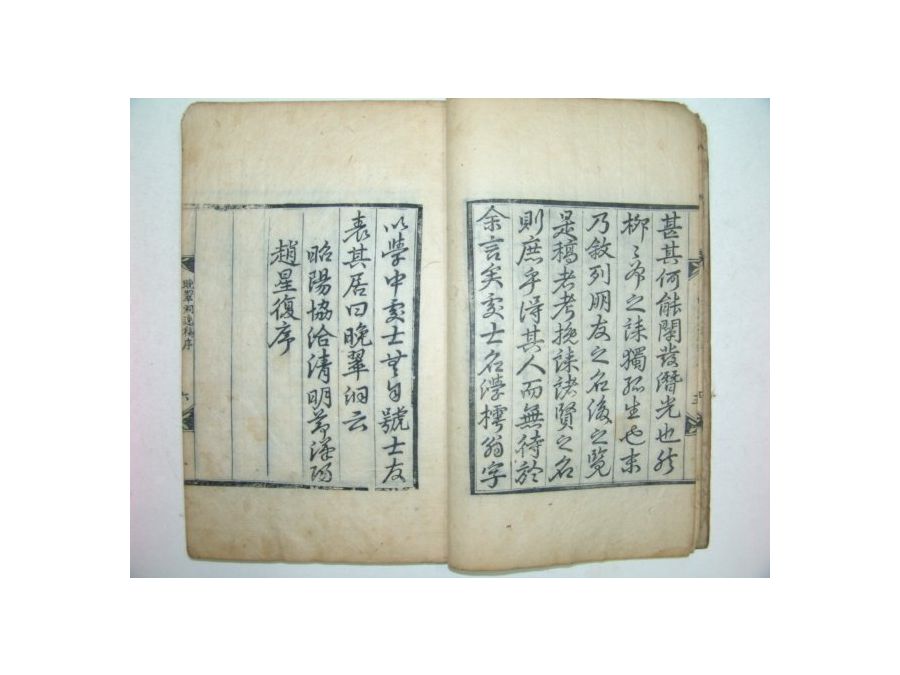 甚其何能闡發潛光也於
柳之之誄獨孤生也東
乃敘列朋友之名後之覽
是稿者考挽誄諸賢之名
則庶乎得其人而無待於
余言矣處士名學檽翁字
以學中處士其自號士友
表其居曰晚翠洞云
昭陽協洽清明節漢陽
趙星復序
晚翠洞逸稿序
六
五